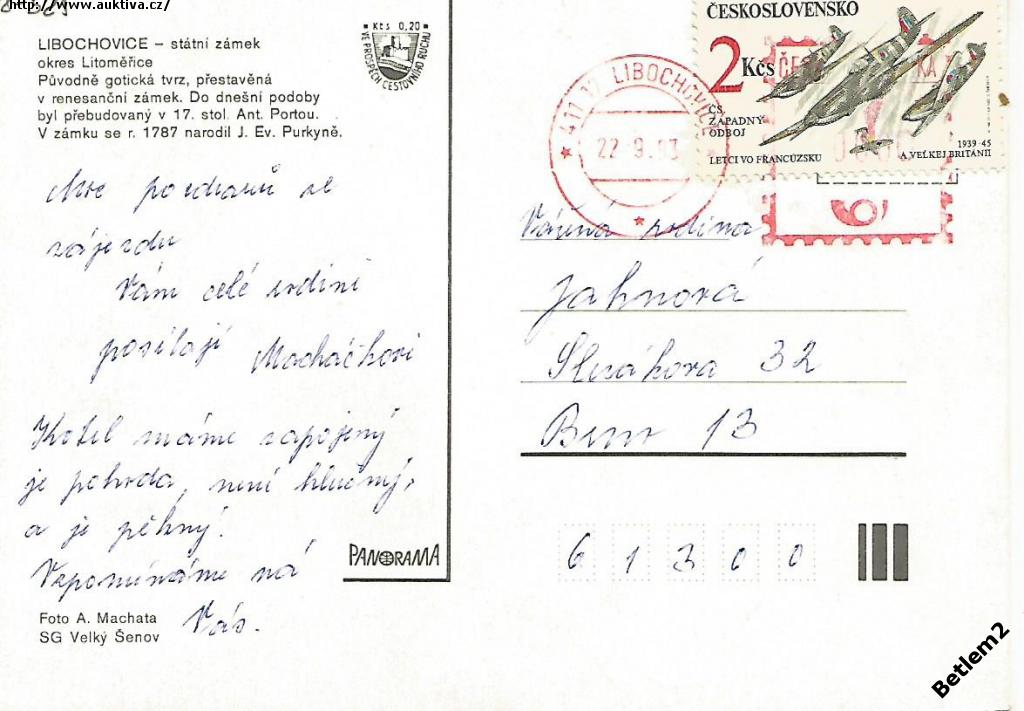 http://www.auktiva.cz/
LIBOCHOVICE – státní zámek
okres Litoměřice
Původně gotická tvrz, přestavěná
v renesanční zámek. Do dnešní podoby
byl přebudovaný v 17. stol. Ant. Portou.
V zámku se r. 1787 narodil J. Ev. Purkyně.
Kčs 0,20
VE PROSPĚCH CESTOVNÍHO RUCHU
pozdravů ze
zájezdu
Vám celé rodině
posílají Macháčkovi
Kotel máme zapojený
je pohoda, není hlučný,
a je pěkný.
Vzpomínáme na
Vás.
PANORAMA
Foto A. Machata
SG Velký Šenov
ČESKOSLOVENSKO
2 Kčs
ČS.
ZÁPADNÝ
ODBOJ
1939-45
LETCI VO FRANCÚZSKU A VEĽKEJ BRITÁNII
411 17 LIBOCHOVICE
22 -9. 93
Vážená rodina
Jahnová
Slezákova 32
Brno 13
61300
Betlem2